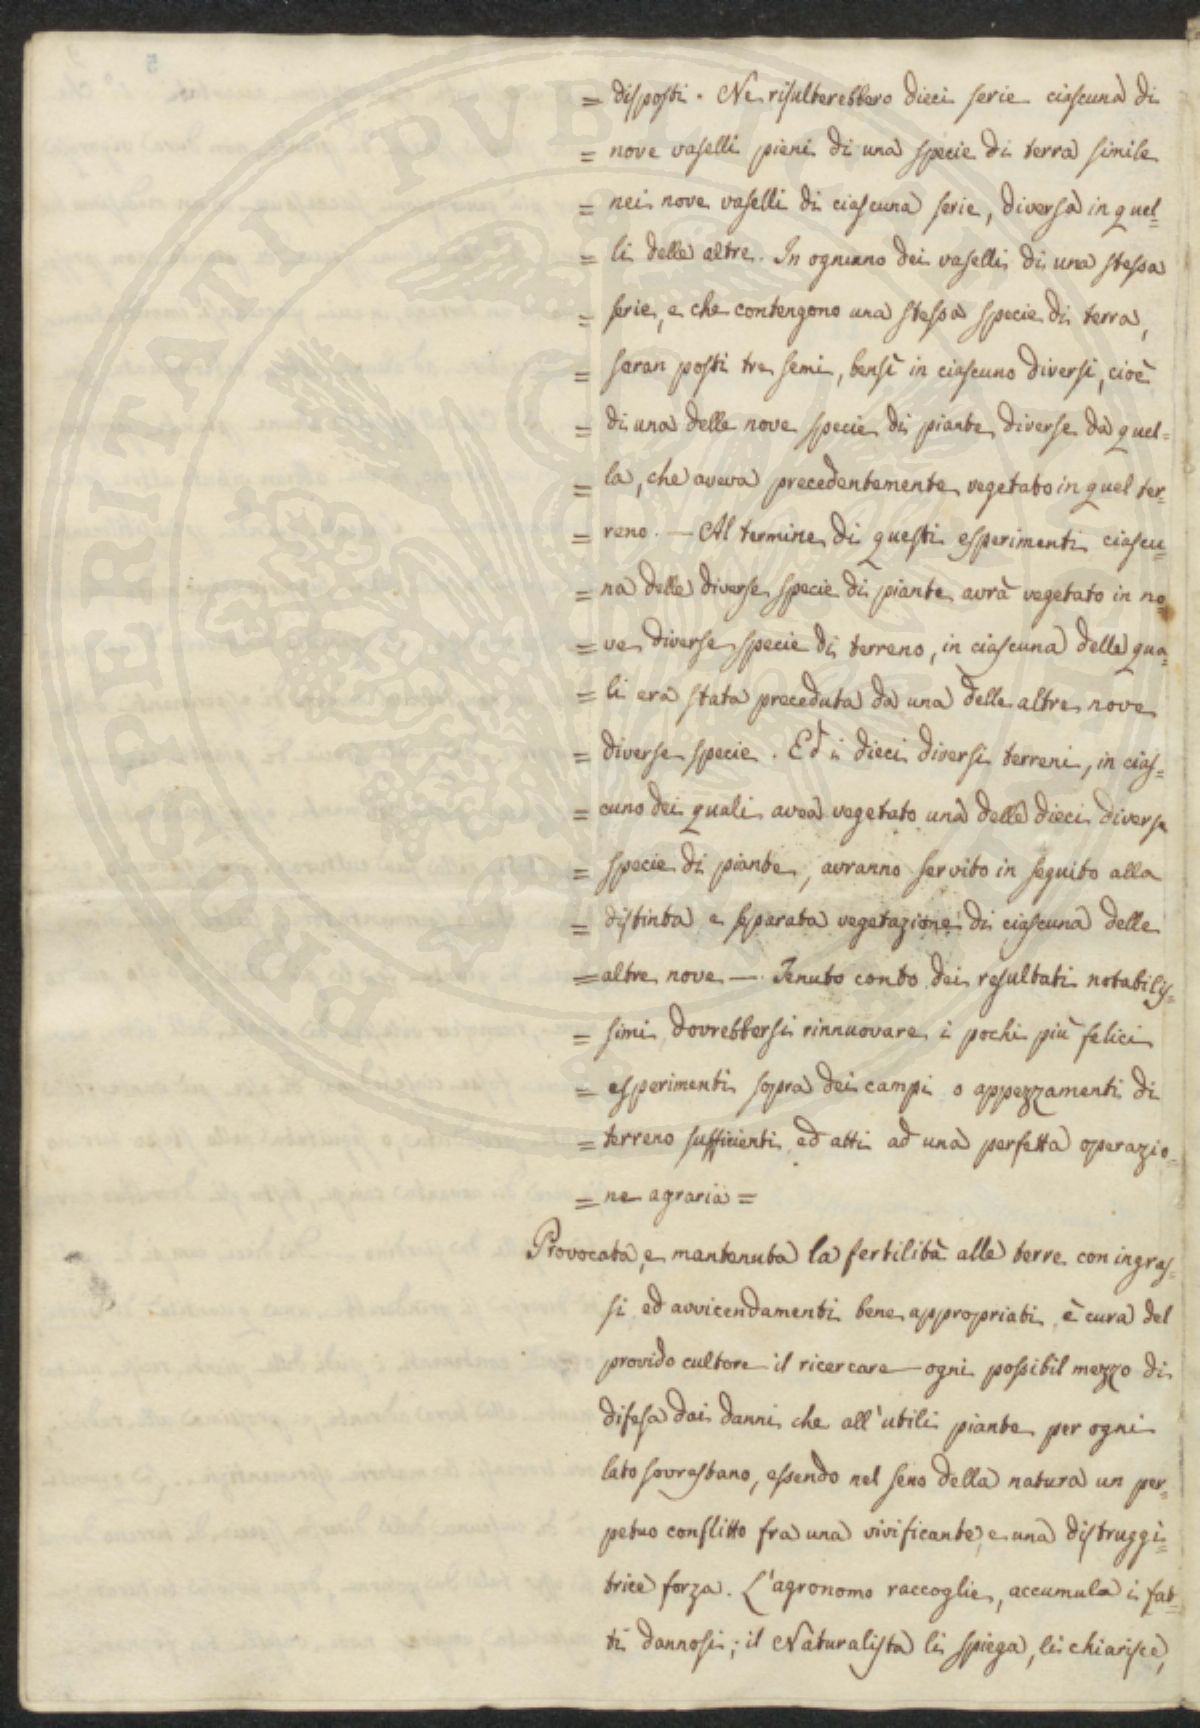 = disposti. Ne risulterebbero dieci serie ciascuna di
= nove vaselli pieni di una specie di terra simile
= nei nove vaselli di ciascuna serie, diversa in quel=
= li delle altre. In ognunno dei vaselli di una stessa
= serie, e che contengono una stessa specie di terra,
= saran posti tre semi, bensì in ciascuno diversi, cioè
= di una delle nove specie di piante diverse da quel=
= la, che aveva precedentemente vegetato in quel ter=
= reno. — Al termine di questi esperimenti ciascu=
= na delle diverse specie di piante avrà vegetato in no=
= ve diverse specie di terreno, in ciascuna delle qua=
= li era stata preceduta da una delle altre nove
= diverse specie. Ed i dieci diversi terreni, in cias=
= cuno dei quali avea vegetato una delle dieci diverse
= specie di piante, avranno servito in seguito alla
= distinta e separata vegetazione di ciascuna delle
= altre nove — Tenuto conto dei resultati notabilis=
= simi dovrebbersi rinnuovare i pochi più felici
= esperimenti sopra dei campi o appezzamenti di
= terreno sufficienti ed atti ad una perfetta operazio=
= ne agraria =
Provocata, e mantenuta la fertilità alle terre con ingras=
si ed avvicendamenti bene appropriati è cura del
provido cultore il ricercare ogni possibil mezzo di
difesa dai danni che all'utili piante per ogni
lato sovrastano, essendo nel seno della natura un per=
petuo conflitto fra una vivificante, e una distruggi=
trice forza. L'agronomo raccoglie, accumula i fat=
ti dannosi; il Naturalista li spiega, li chiarisce,